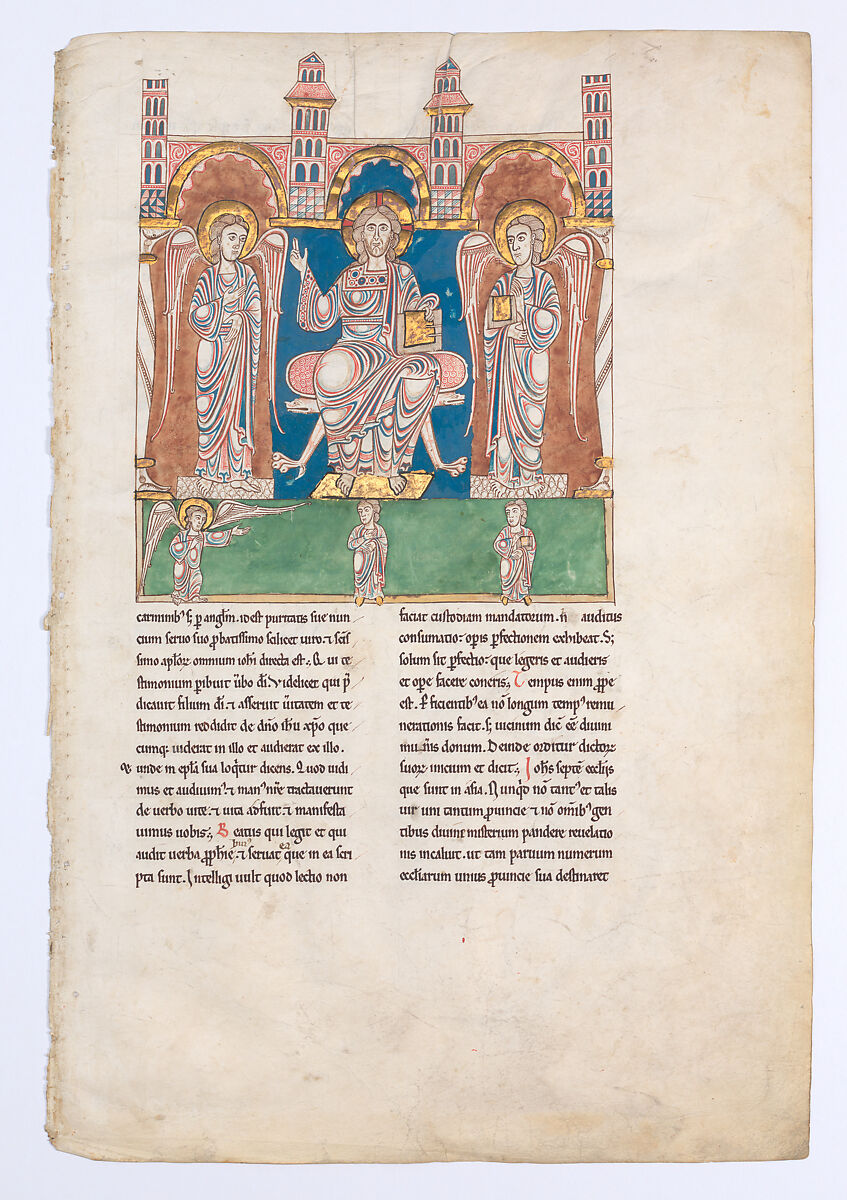 carminib᷒ s; p̱ angl̄m. id est puritatis sue nun
cium seruo suo p̱batissimo scilicet uiro. ⁊ sc̄is
simo ap̄lor̄ omnium ioh̄i directa est;. Q ui te
stimonium ꝑibuit ūbo dī. Videlicet qui p̄
dicauit filium dī. ⁊ asseruit ūitatem et te
stimonium reddidit de dn̄o ih̄u xp̄o que
cumq; uiderat in illo et audierat ex illo.
unde in ep̄la sua loq̇tur dicens. Quod uidi
mus et audiuim᷒. ⁊ man᷒ nr̄e tractauerunt
de uerbo uite. ⁊ uita adfuit. ⁊ manifesta
uimus uobis;. B eatus qui legit et qui
audit uerba ꝓphīe. ⁊ seruat que in ea scri
pta sunt. Intelligi uult quod lectio non
faciat custodiam mandatorum. n̄ auditus
consumatio. opis ꝑfectionem exhibeat. S;
solum sit ꝑfectio. que legeris et audieris
et ope facere coneris;. T empus enim ꝓpe
est. P̱ ficientib᷒ ea nō longum temp᷒ remu
nerationis facit. s; uicinum dic̄ ēē diuini
mun̄is donum. Deinde orditur dictor̄
suor̄ inicium et dicit;. Ioh̄s septē eccl̄iis
que sunt in asia. Nunq̇d nō tant᷒ et talis
uir uni tantum ꝓuincie ⁊ nō om̄ib᷒ gen
tibus diuine misterium pandere reuelatio
nis incaluit. ut tam paruum numerum
eccl̄iarum unius ꝓuincie sua destinaret